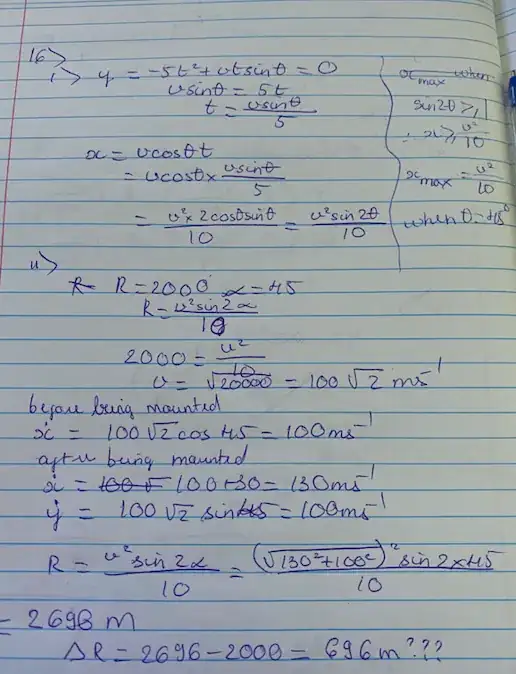 16>
i> y = -5t² + vtsinθ = 0
vsinθ = 5t
t = vsinθ / 5
x = vcosθt
= vcosθ × vsinθ / 5
= v² × 2cosθsinθ / 10 = v²sin2θ / 10
x max when
sin2θ ⩾ 1
∴ x ⩾ v² / 10
x max = v² / 10
when θ = 45°
ii>
R = 2000 α = 45
R = v²sin2α / 10
2000 = v² / 10
v = √20000 = 100√2 ms⁻¹
before being mounted
ẋ = 100√2 cos 45 = 100ms⁻¹
after being mounted
ẋ = 100+30 = 130ms⁻¹
ẏ = 100√2 sin45 = 100ms⁻¹
R = v²sin2α / 10 = (√130²+100²)² sin2×45 / 10
= 2696 m
ΔR = 2696 - 2000 = 696m???